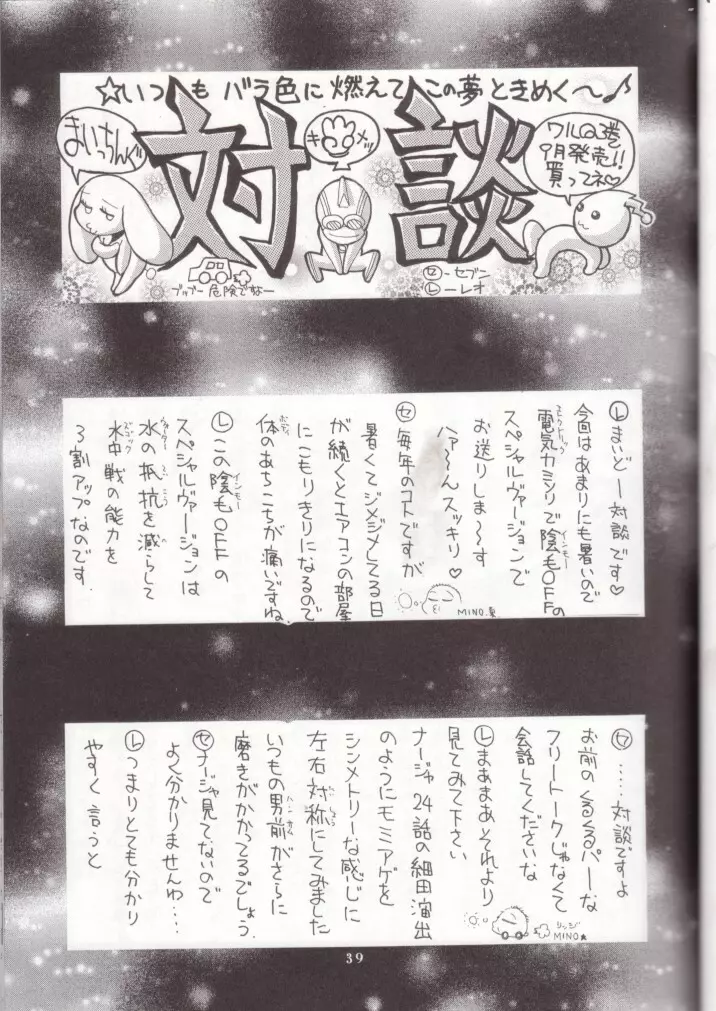 ☆いつもバラ色に燃えてこの夢ときめく〜♪
対談
まいっちんぐ
キメッ
ワルQ3巻
9月発売!!
買ってネ♡
ブッブー危険でなー
セ-セブー
レ-レオ
レ まいどー対談です♡
今回はあまりにも暑いので
電気カミソリで陰毛OFFの
スペシャルヴァージョンで
お送りしま〜す
ハァ〜ンスッキリ♡
セ 毎年のコトですが
暑くてジメジメしてる日
が続くとエアコンの部屋
にこもりきりになるので
体のあちこちが痛いですね。
レ この陰毛OFFの
スペシャルヴァージョンは
水の抵抗を減らして
水中戦の能力を
3割アップなのです
MINO
セ ……対談ですよ
お前のくるくるパーな
フリートークじゃなくて
会話してくださいな
レ まぁまぁそれより
見てみて下さい
ナージャ24話の細田演出
のようにモミアゲを
シンメトリーな感じに
左右対称にしてみました
いつもの男前がさらに
磨きがかかってるでしょう
セ ナージャ見てないので
よく分かりませんわ…
レ つまりとても分かり
やすく言うと
MINO★
39